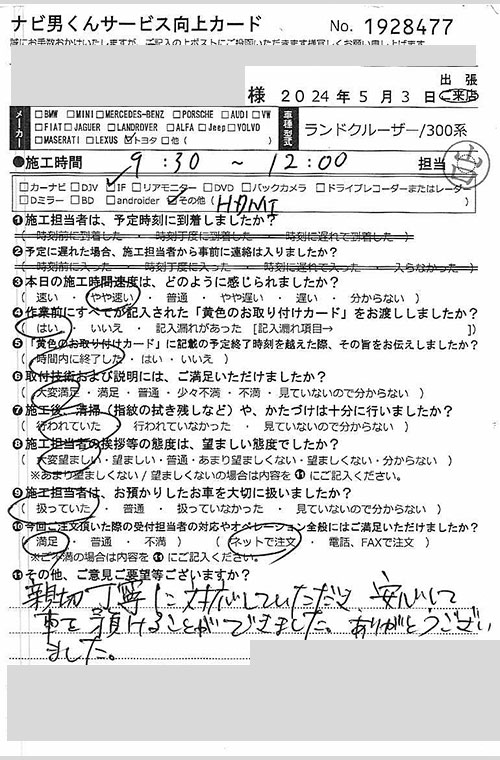 ナビ男くんサービス向上カード No. 1928477
様 2024年5月3日 出張 ご来店
メーカー □BMW □MINI □MERCEDES-BENZ □PORSCHE □AUDI □VW
□FIAT □JAGUER □LANDROVER □ALFA □Jeep □VOLVO
□MASERATI □LEXUS ☑トヨタ □他 ( )
車種/型式 ランドクルーザー/300系
●施工時間 9:30 ～ 12:00 担当
□カーナビ □DJV ☑IF □リアモニター □DVD □バックカメラ □ドライブレコーダーまたはレーダー
□Dミラー □BD □androider ☑その他 ( HDMI )
❶施工担当者は、予定時刻に到着しましたか?
( 時刻前に到着した ・ 時刻丁度に到着した ・ 時刻に遅れて到着した )
❷予定に遅れた場合、施工担当者から事前に連絡は入りましたか?
( 時刻前に入った ・ 時刻丁度に入った ・ 時刻に遅れて入った ・ 入らなかった )
❸本日の施工時間速度は、どのように感じられましたか?
( 速い ・ やや速い ・ 普通 ・ やや遅い ・ 遅い ・ 分からない )
❹作業前にすべてが記入された「黄色のお取り付けカード」をお渡ししましたか?
( はい ・ いいえ ・ 記入漏れがあった [記入漏れ項目→ ])
❺「黄色のお取り付けカード」に記載の予定終了時刻を越えた際、その旨をお伝えしましたか?
( 時間内に終了した ・ はい ・ いいえ )
❻取付技術および説明には、ご満足いただけましたか?
( 大変満足 ・ 満足 ・ 普通 ・ 少々不満 ・ 不満 ・ 見ていないので分からない )
❼施工後、清掃(指紋の拭き残しなど)や、かたづけは十分に行いましたか?
( 行われていた ・ 行われていなかった ・ 見ていないので分からない )
❽施工担当者の挨拶等の態度は、望ましい態度でしたか?
( 大変望ましい ・ 望ましい ・ 普通 ・ あまり望ましくない ・ 望ましくない ・ 分からない )
※あまり望ましくない / 望ましくないの場合は内容を⓫にご記入ください。
❾施工担当者は、お預かりしたお車を大切に扱いましたか?
( 扱っていた ・ 普通 ・ 扱っていなかった ・ 見ていないので分からない )
❿今回ご注文頂いた際の受付担当者の対応やオペレーション全般にはご満足いただけましたか?
( 満足 ・ 普通 ・ 不満 ) ( ネットで注文 ・ 電話、FAXで注文 )
※ご不満の場合は内容を⓫にご記入ください。
⓫その他、ご意見ご要望等ございますか?
親切丁寧に対応していただき 安心して
車を預けることができました。ありがとうござい
ました。